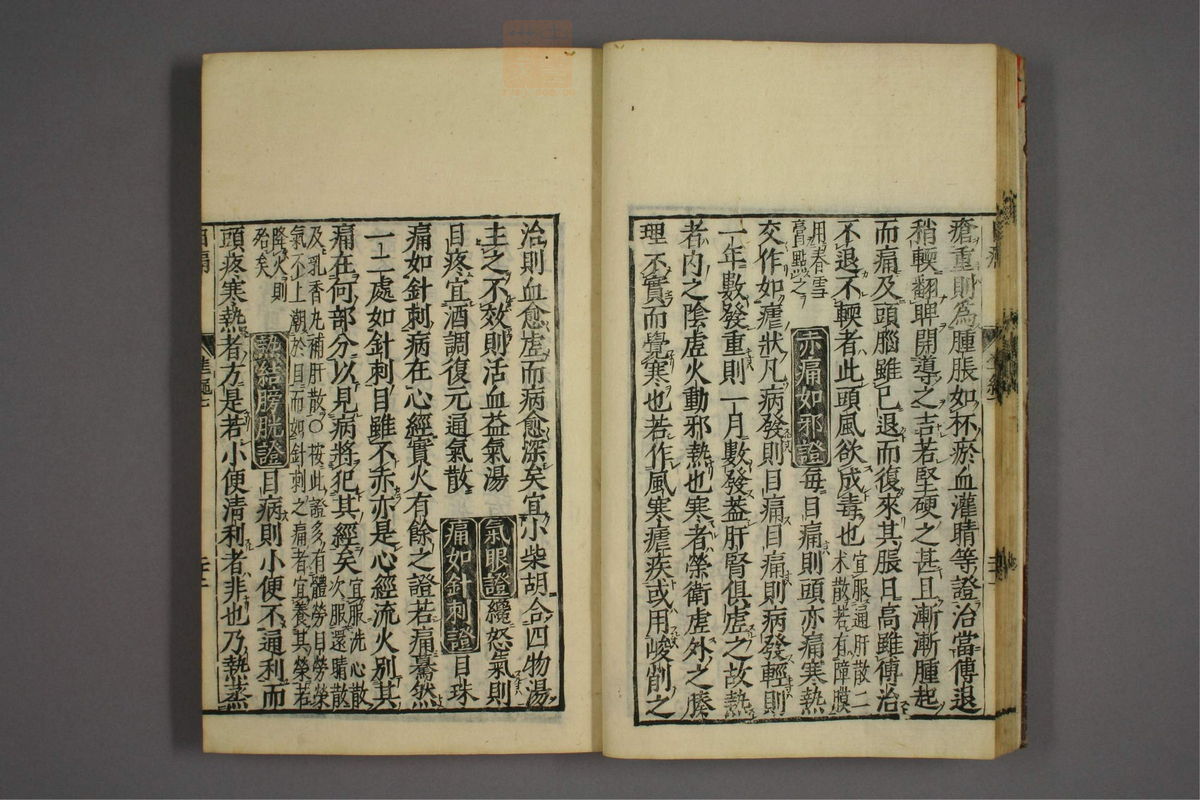 瘡重則為腫脹如杯瘀血灌睛等證治當傅退
稍輭翻睥開導之吉若堅硬之甚且漸漸腫起
而痛及頭腦雖已退而復來其脹日高雖傅治
不退不輭者此頭風欲成毒也宜服通肝散二
术散若有障膜
用春雪
膏點之
赤痛如邪證
每目痛則頭亦痛寒熱
交作如瘧狀凡病發則目痛目痛則病發輕則
一年數發重則一月數發蓋肝腎俱虛之故熱
者內之陰虛火動邪熱也寒者榮衛虛外之腠
理不實而覺寒也若作風寒瘧疾或用峻削之
治則血愈虛而病愈深矣宜小柴胡合四物湯
主之不效則活血益氣湯
氣眼證
纔怒氣則
目疼宜酒調復元通氣散
痛如針刺證
目珠
痛如針刺病在心經實火有餘之證若痛驀然
一二處如針刺目雖不赤亦是心經流火別其
痛在何部分以見病將犯其經矣宜服洗心散
次服還睛散
及乳香丸補肝散○按此證多有體勞目勞榮
氣不上潮於目而如針刺之痛者宜養其榮若
降火則
殆矣
熱結膀胱證
目病則小便不通利而
頭疼寒熱者方是若小便清利者非也乃熱蒸